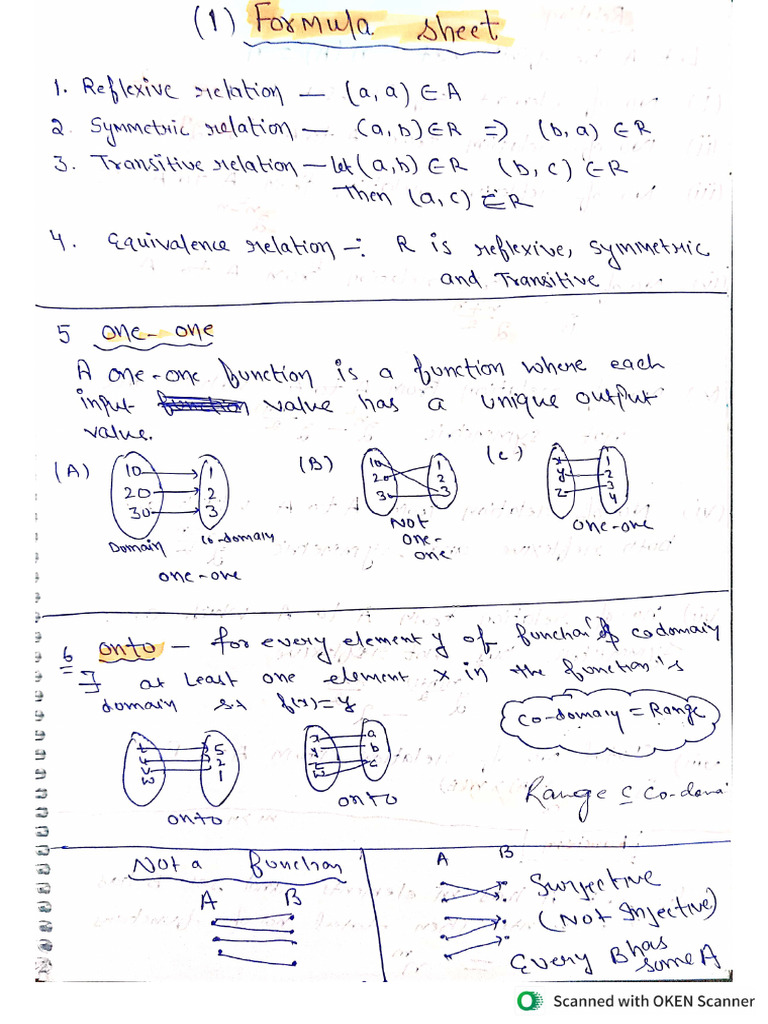 (1) Formula sheet
1. Reflexive relation — (a, a) ∈ A
2. Symmetric relation — (a, b) ∈ R ⇒ (b, a) ∈ R
3. Transitive relation — let (a, b) ∈ R (b, c) ∈ R
Then (a, c) ∈ R
4. Equivalence relation –: R is reflexive, symmetric
and Transitive
5 one-one
A one-one function is a function where each
input value has a unique output
value.
(A) (B) (c)
10 1
20 2
30 3
Domain co-domain
one-one
10 1
20 2
30 3
NOT
one-
one
x 1
y 2
z 3
4
one-one
6 onto — for every element y of function's codomain
∃ at least one element x in the function's
domain s.t f(x)=y
co-domain = Range
5
2
1
onto
a
b
c
onto
Range ⊆ co-domai
Not a function
A B
A B
Surjective
(Not Injective)
Every B has
some A
Scanned with OKEN Scanner